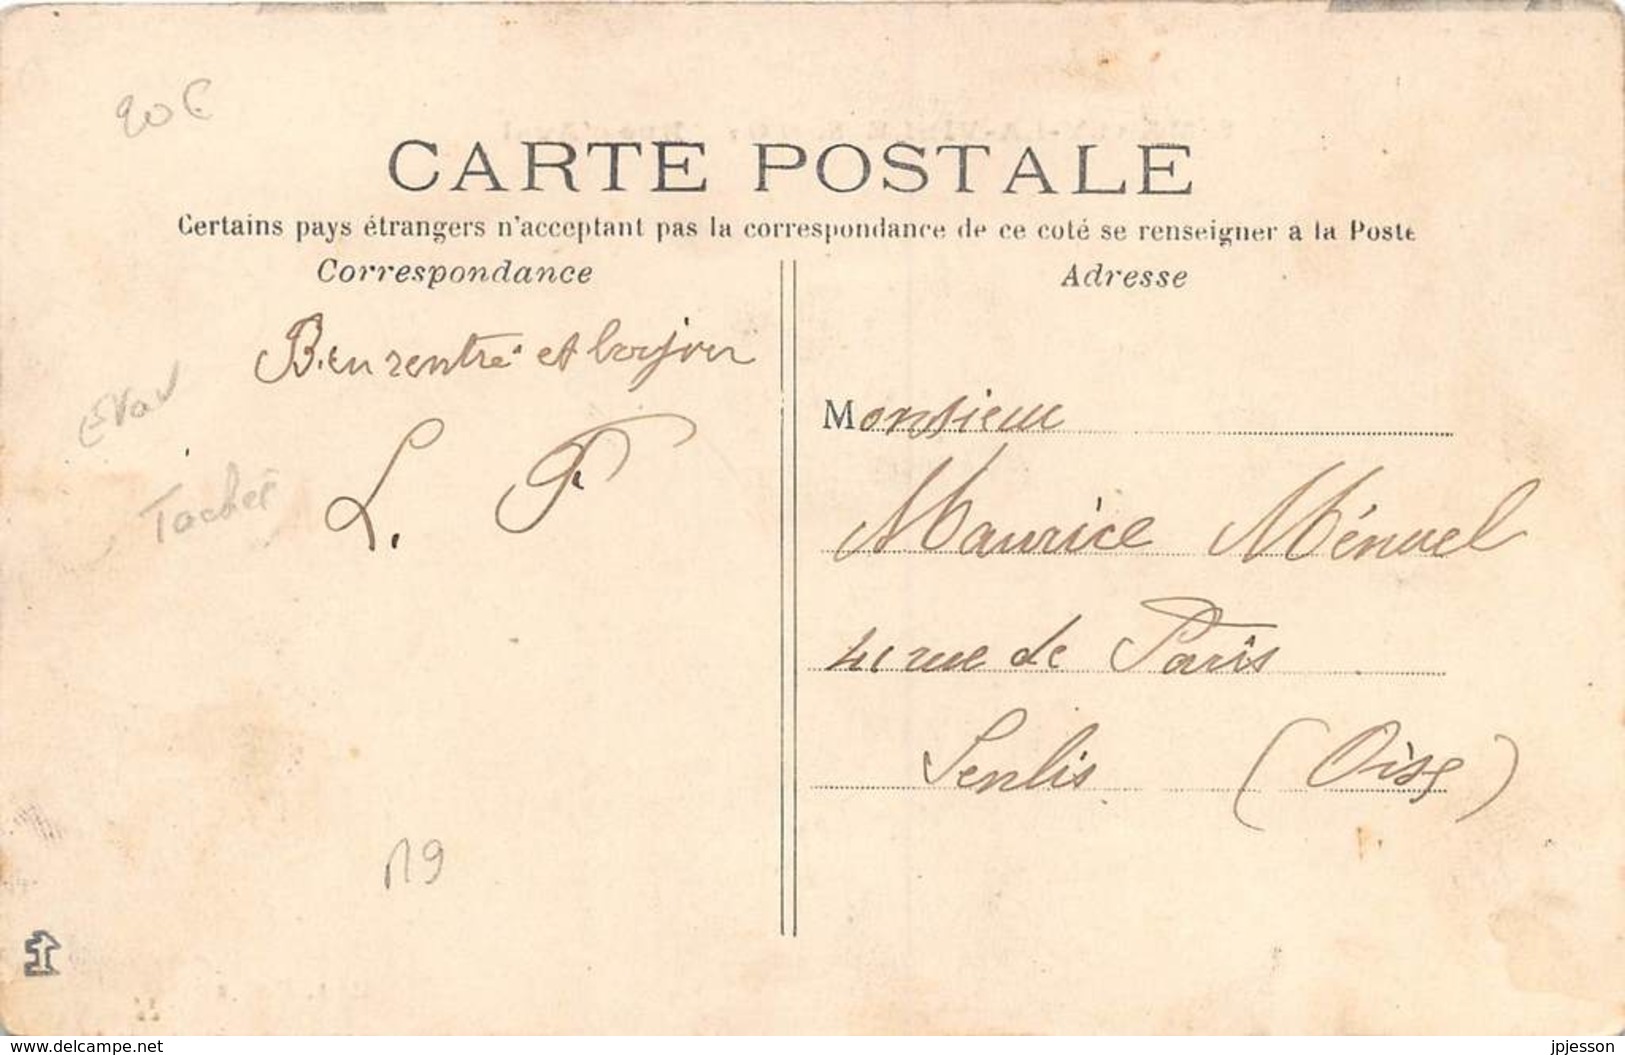 20€
CARTE POSTALE
Certains pays étrangers n'acceptant pas la correspondance de ce coté se renseigner a la Poste
Correspondance
Bien rentré et bonjour
L. F
Tachée
119
Adresse
Monsieur
Maurice Ménuel
41 rue de Paris
Senlis (Oise)
www.delcampe.net
jpjesson